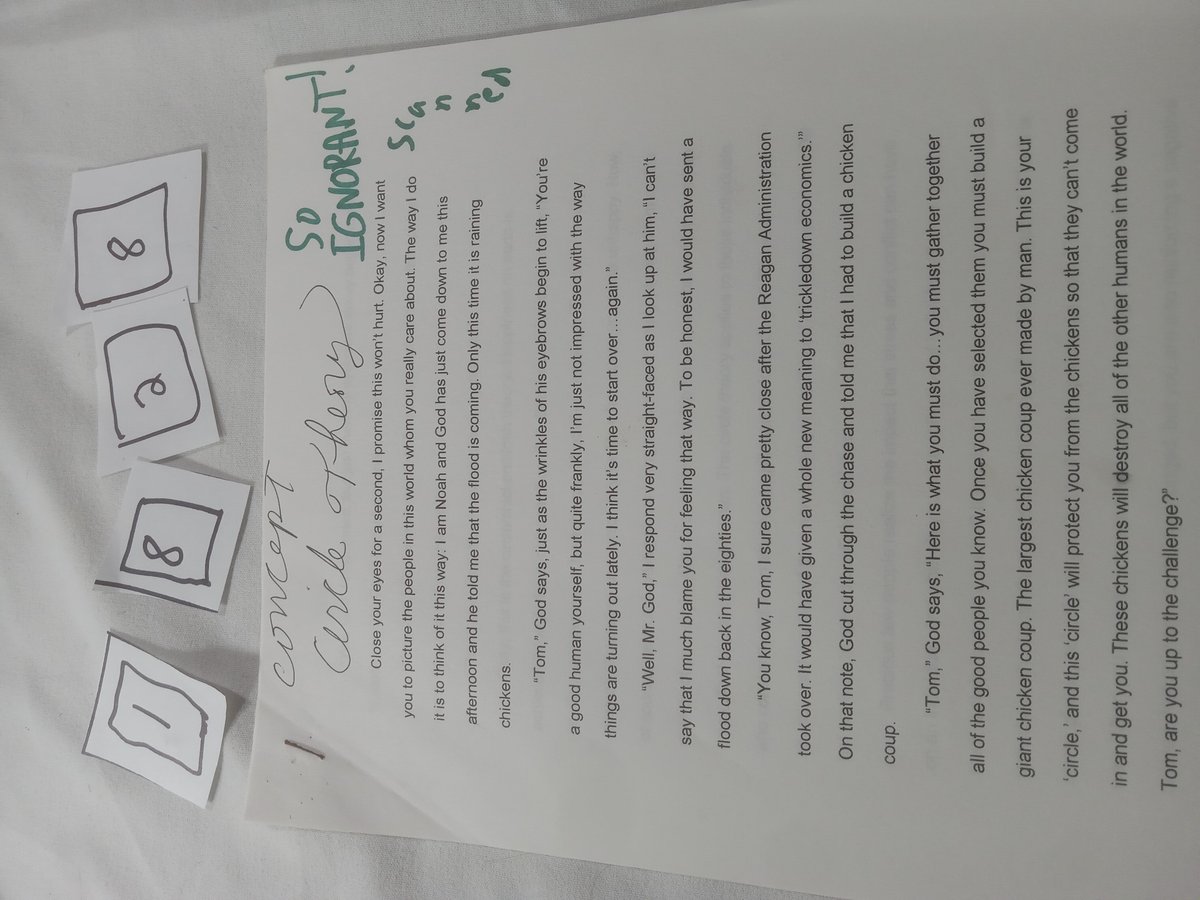 1 8 2 8
concept
Circle of Theory
SO
IGNORANT!
Sca
n
ned
Close your eyes for a second, I promise this won't hurt. Okay, now I want
you to picture the people in this world whom you really care about. The way I do
it is to think of it this way: I am Noah and God has just come down to me this
afternoon and he told me that the flood is coming. Only this time it is raining
chickens.
"Tom," God says, just as the wrinkles of his eyebrows begin to lift, "You're
a good human yourself, but quite frankly, I'm just not impressed with the way
things are turning out lately. I think it's time to start over…again."
"Well, Mr. God," I respond very straight-faced as I look up at him, "I can't
say that I much blame you for feeling that way. To be honest, I would have sent a
flood down back in the eighties."
"You know, Tom, I sure came pretty close after the Reagan Administration
took over. It would have given a whole new meaning to 'trickledown economics.'"
On that note, God cut through the chase and told me that I had to build a chicken
coup.
"Tom," God says, "Here is what you must do…you must gather together
all of the good people you know. Once you have selected them you must build a
giant chicken coup. The largest chicken coup ever made by man. This is your
'circle,' and this 'circle' will protect you from the chickens so that they can't come
in and get you. These chickens will destroy all of the other humans in the world.
Tom, are you up to the challenge?"